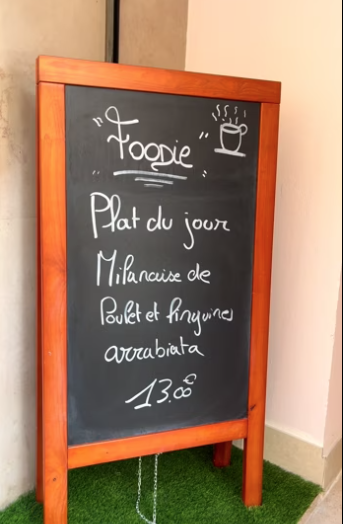 "Foodie"
Plat du jour
Milanaise de
Poulet et linguines
arrabiata
13.00€